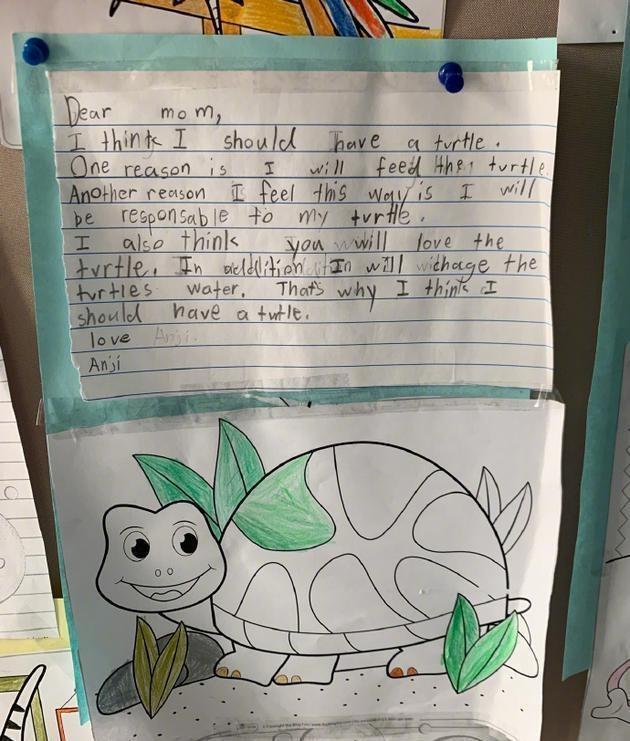 Dear mom,
I think I should have a turtle.
One reason is I will feed the turtle.
Another reason I feel this way is I will
be responsable to my turtle.
I also think you will love the
turtle. In addition I will chage the
turtles water. That's why I think I
should have a tutle.
love Anji.
Anji